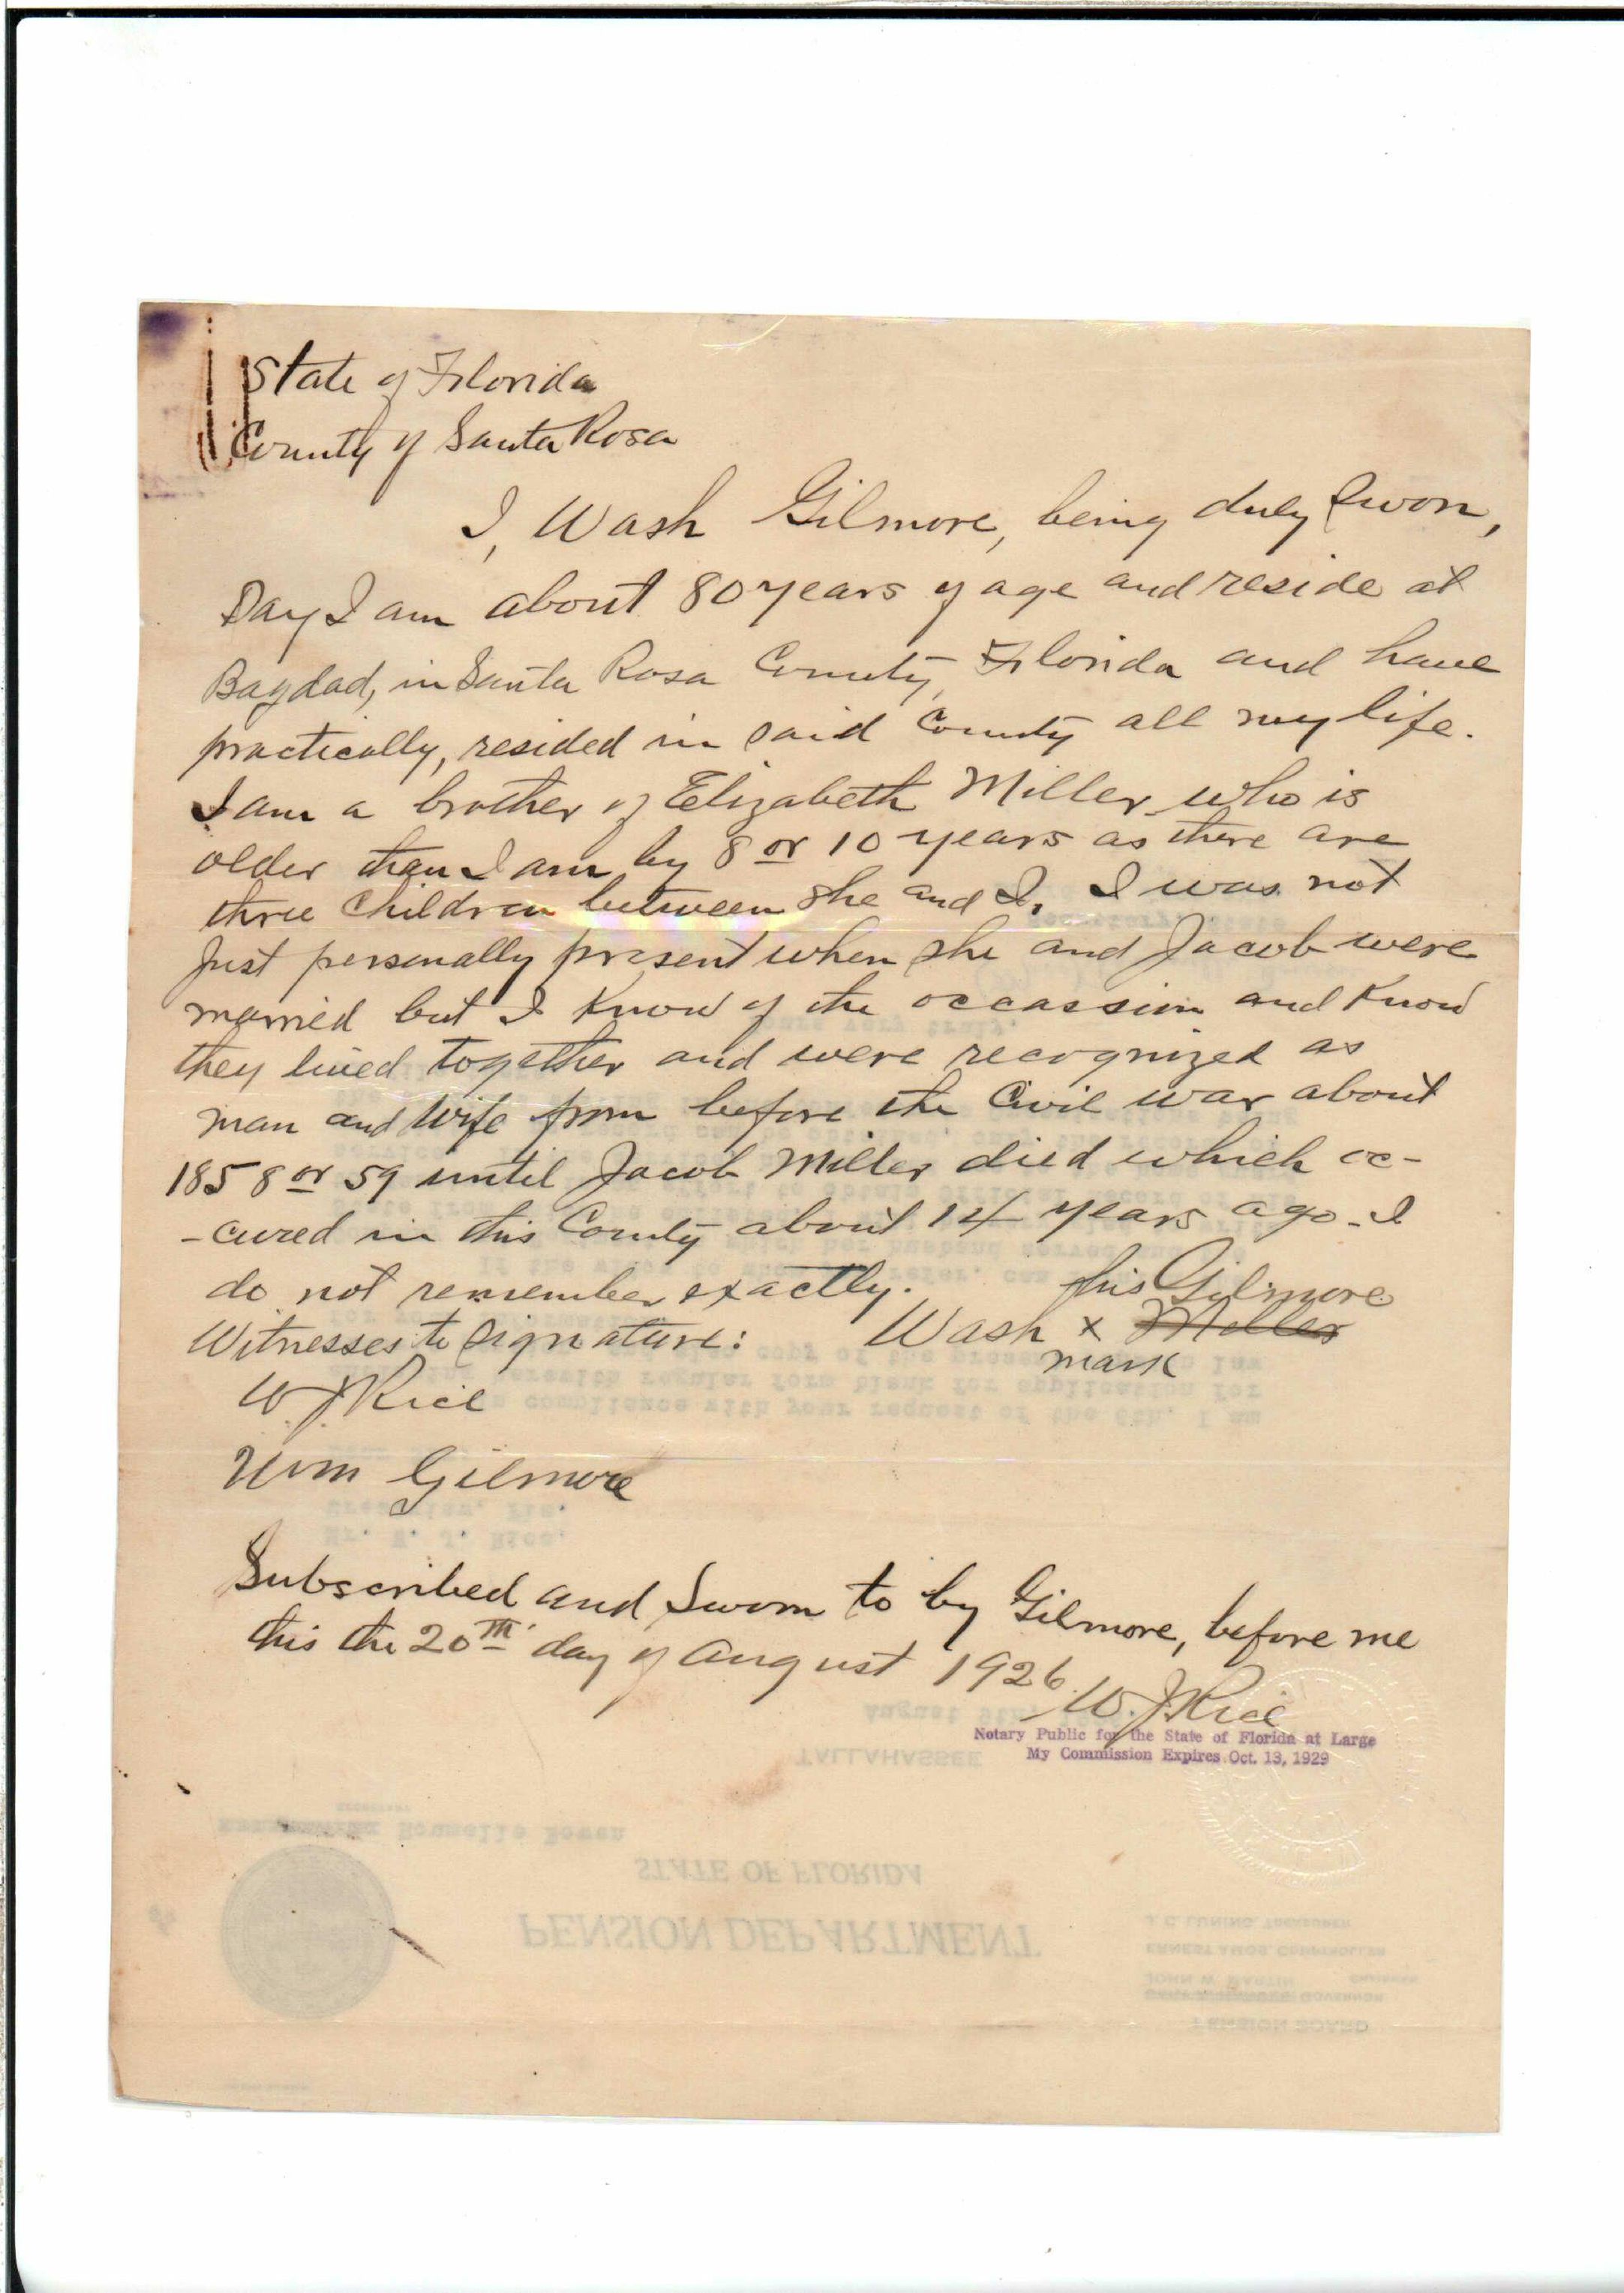 State of Florida
County of Santa Rosa
I, Wash Gilmore, being duly sworn,
Say I am about 80 years of age and reside at
Bagdad, in Santa Rosa County, Florida and have
practically, resided in said County all my life.
I am a brother of Elizabeth Miller who is
older than I am by 8 or 10 years as there are
three children between she and I. I was not
Just personally present when she and Jacob were
married but I know of the occassion and know
they lived together and were recognized as
man and wife from before the Civil war about
1858 or 59 until Jacob Miller died which oc-
-cured in this County about 14 years ago - I
do not remember exactly.
his Gilmore
Witnesses to signature: Wash x Miller
mark
W. J. Rice
Wm Gilmore
Subscribed and Sworn to by Gilmore, before me
this the 20th day of August 1926.
W. J. Rice
Notary Public for the State of Florida at Large
My Commission Expires Oct. 13, 1929
August 9th
TALLAHASSEE
STATE OF FLORIDA
PENSION DEPARTMENT
J. C. LUNING, TREASURER
ERNEST AMOS, COMPTROLLER
JOHN W. MARTIN
GOVERNOR
PENSION BOARD